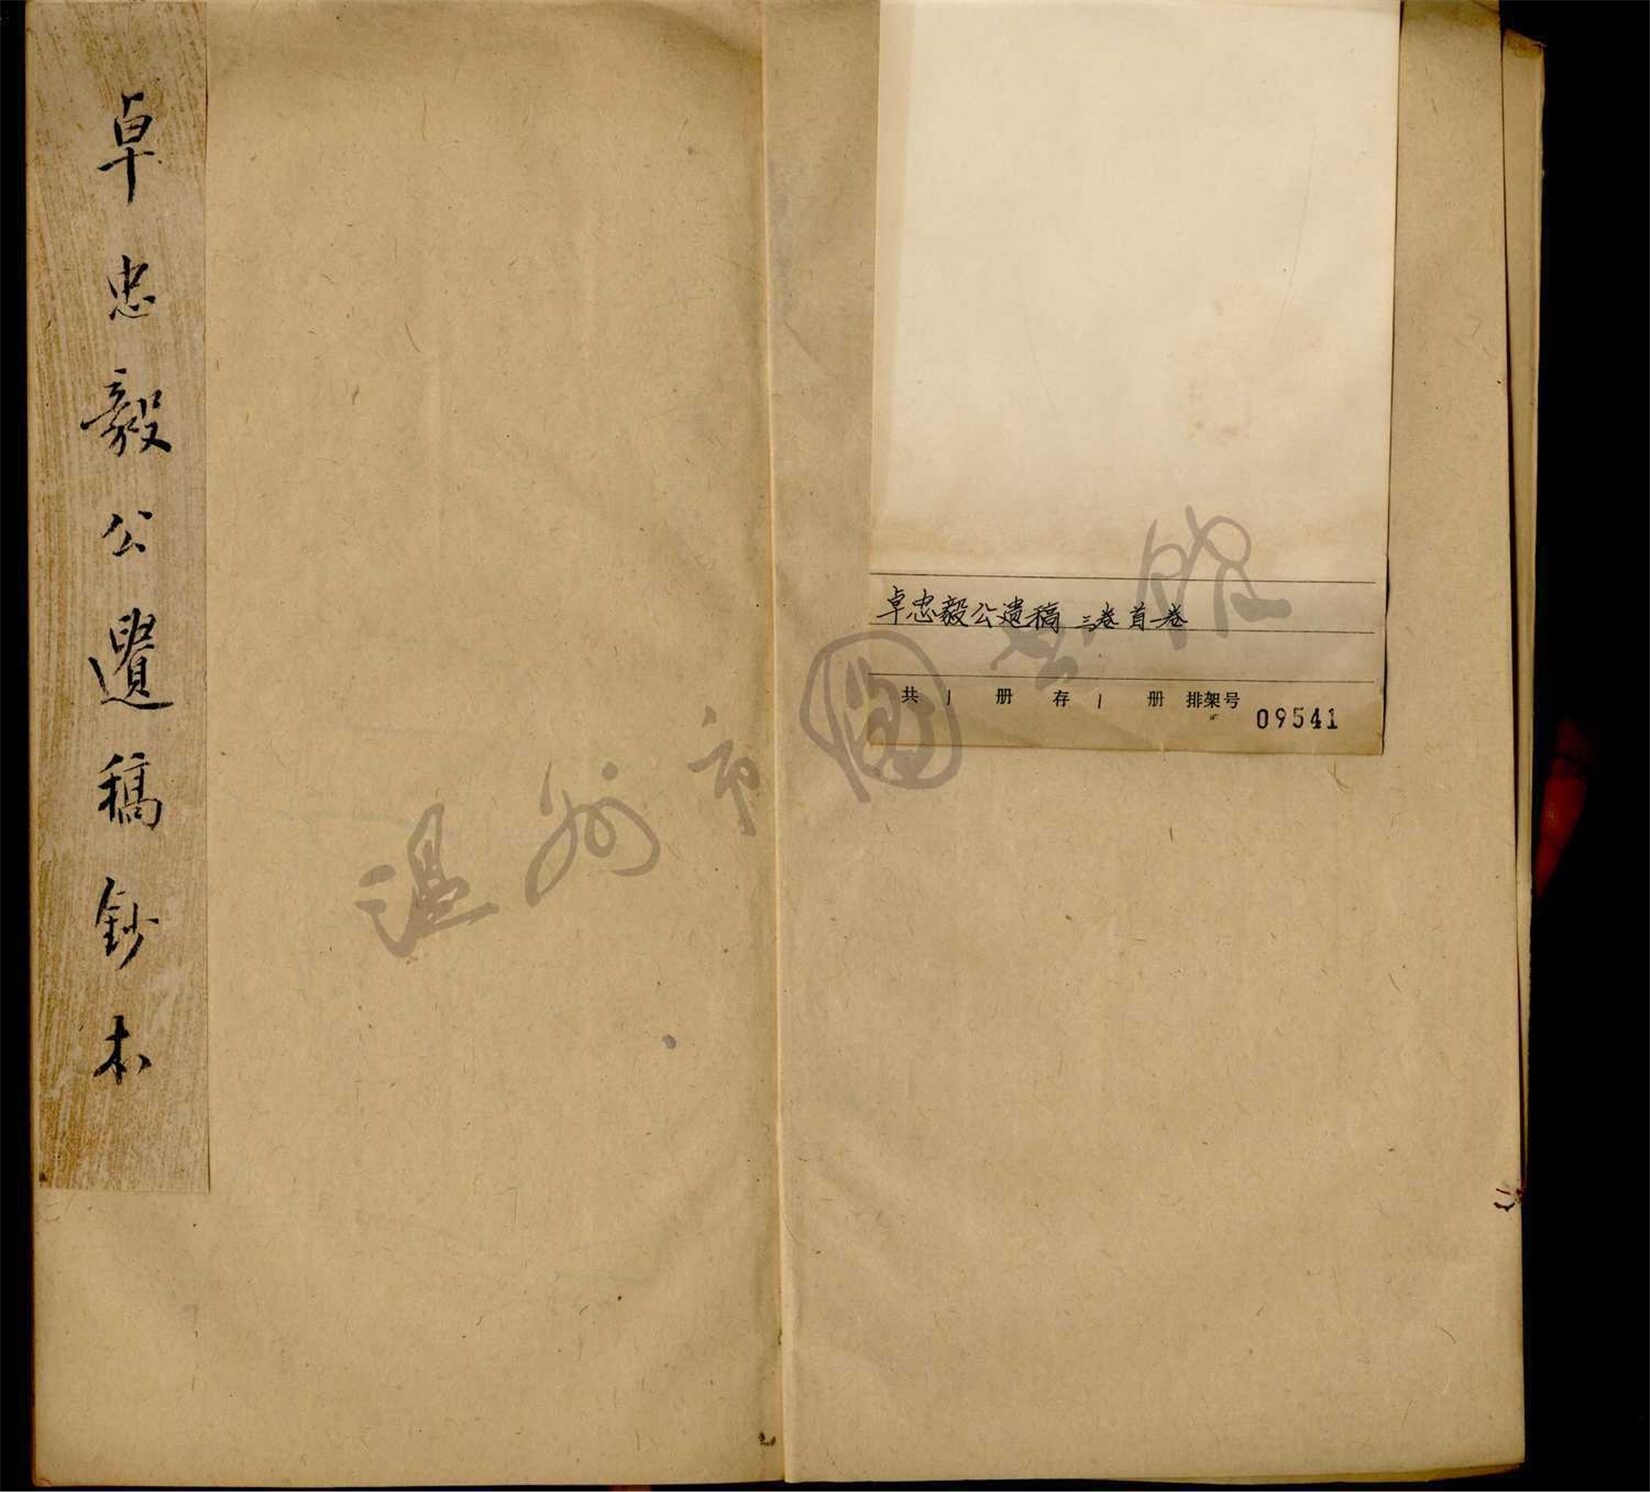 卓忠毅公遺稿鈔本
卓忠毅公遗稿 三卷首一卷
共1册存1册 排架号 09541
温州市圖书馆